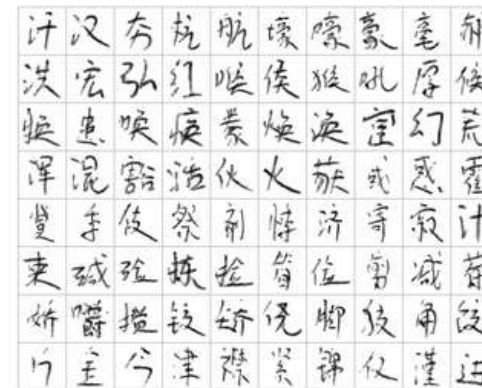 汗 汉 夯 杭 航 壕 嚎 豪 毫 郝
洪 宏 弘 红 喉 侯 猴 吼 厚 候
换 患 唤 痪 豢 焕 涣 宦 幻 荒
浑 混 豁 活 伙 火 获 或 惑 霍
冀 季 伎 祭 剂 悸 济 寄 寂 计
柬 碱 硷 拣 捡 简 俭 剪 减 荐
娇 嚼 搅 铰 矫 侥 脚 狡 角 饺
斤 金 今 津 襟 紧 锦 仅 谨 进